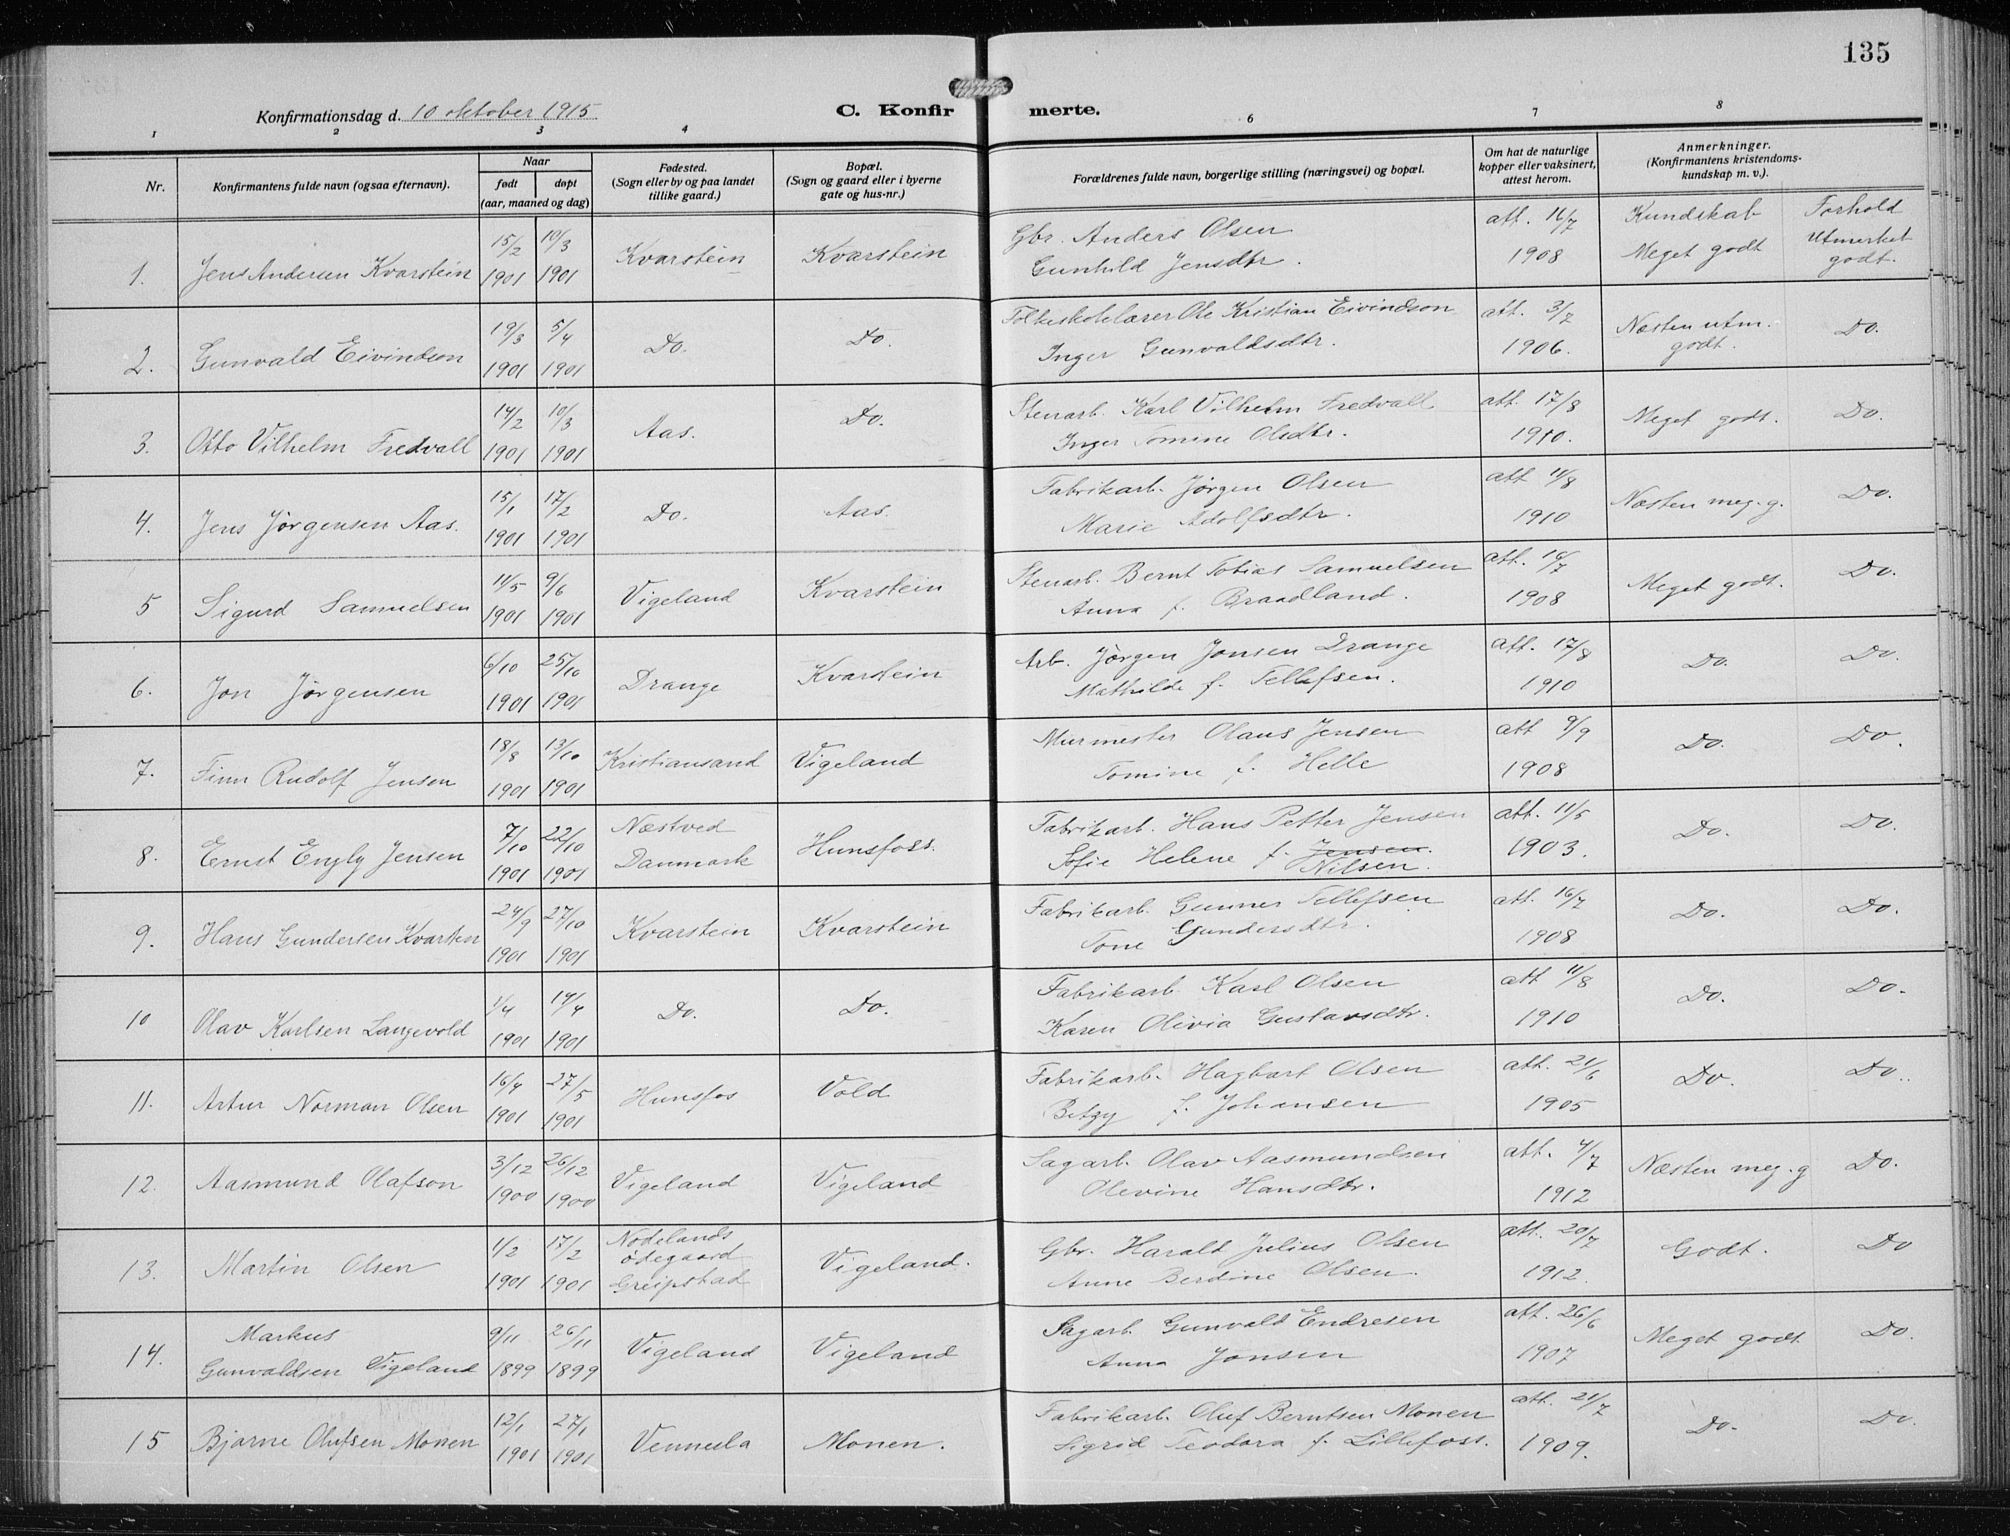 135
Konfirmationsdag d. 10 oktober 1915.
C. Konfirmerte.
1 2 3 4 5 6 7 8
Nr.
Konfirmantens fulde navn (ogsaa efternavn).
Naar
født døpt
(aar, maaned og dag)
Fødested.
(Sogn eller by og paa landet
tillike gaard.)
Bopæl.
(Sogn og gaard eller i byerne
gate og hus-nr.)
Forældrenes fulde navn, borgerlige stilling (næringsvei) og bopæl.
Om hat de naturlige
kopper eller vaksinert,
attest herom.
Anmerkninger.
(Konfirmantens kristendoms-
kundskap m. v.).
Kundskab Forhold
1. Jens Andersen Kvarstein
15/2 1901
10/3 1901
Kvarstein
Kvarstein
Gbr. Anders Olsen
Gunhild Jensdtr.
att. 16/7
1908
Meget godt
Utmerket
godt.
2. Gunvald Eivindson
19/3 1901
5/4 1901
Do.
Do.
Folkeskolelærer Ole Kristian Eivindson
Inger Gunvaldsdtr.
att. 3/7
1906.
Næsten utm.
godt.
Do.
3. Otto Vilhelm Fredvall
14/2 1901
10/3 1901
Aas.
Do.
Stenarb. Karl Vilhelm Fredvall
Inger Tomine Olsdtr.
att. 17/8
1910.
Meget godt.
Do.
4. Jens Jørgensen Aas.
15/1 1901
17/2 1901
Do.
Aas.
Fabrikarb. Jørgen Olsen
Marie Adolfsdtr.
att 11/8
1910
Næsten meg. g.
Do.
5 Sigurd Samuelsen
11/5 1901
9/6 1901
Vigeland
Kvarstein
Stenarb. Bernt Tobias Samuelsen
Anna f. Braadland.
att. 16/7
1908
Meget godt.
Do.
6. Jon Jørgensen
6/10 1901
25/10 1901
Drange
Kvarstein
Arb. Jørgen Jonsen Drange
Mathilde f. Tellefsen.
att. 17/8
1910
Do.
Do.
7. Finn Rudolf Jensen
18/8 1901
13/10 1901
Kristiansand
Vigeland
Murmester Olaus Jensen
Tomine f. Helle
att 9/9
1908
Do.
Do.
8. Ernst Engly Jensen
7/10 1901
22/10 1901
Næstved
Danmark
Hunsfoss.
Fabrikarb. Hans Petter Jensen
Sofie Helene f. Jensen.
Nilsen.
att. 11/5
1903.
Do.
Do.
9. Hans Gundersen Kvarsten
24/9 1901
27/10 1901
Kvarstein
Kvarstein
Fabrikarb. Gunner Tellefsen
Tone Gundersdtr.
att. 16/7
1908
Do.
Do.
10 Olav Karlsen Langevold
1/4 1901
14/4 1901
Do.
Do.
Fabrikarb. Karl Olsen
Karen Olivia Gustavsdtr.
att 11/8
1910
Do.
Do.
11. Artur Norman Olsen
16/4 1901
27/5 1901
Hunsfos
Vold
Fabrikarb. Hagbart Olsen
Betzy f. Johansen
att. 21/6
1905
Do.
Do.
12. Aasmund Olafson
3/12 1900
26/12 1900
Vigeland
Vigeland
Sagarb. Olav Aasmundsen
Olevine Hansdtr.
att. 4/7
1912
Næsten meg. g
Do.
13. Martin Olsen
1/2 1901
17/2 1901
Nodelands
ødegaard
Greipstad
Vigeland.
Gbr. Harald Julius Olsen
Anne Berdine Olsen.
att. 20/7
1912.
Godt.
Do
14. Markus
Gunvaldsen Vigeland
9/11 1899
26/11 1899
Vigeland
Vigeland
Sagarb. Gunvald Endresen
Anna Jonsen
att. 26/6
1907
Meget godt
Do.
15 Bjarne Olufsen Monen
12/1 1901
27/1 1901
Vennesla
Monen.
Fabrikarb. Oluf Berntsen Monen
Sigrid Teodora f. Lillefoss.
att. 21/7
1909.
Do.
Do.